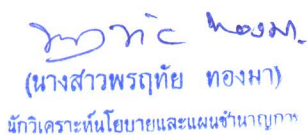 (นางสาวพรฤทัย ทองมา)
นักวิเคราะห์นโยบายและแผนชำนาญการ